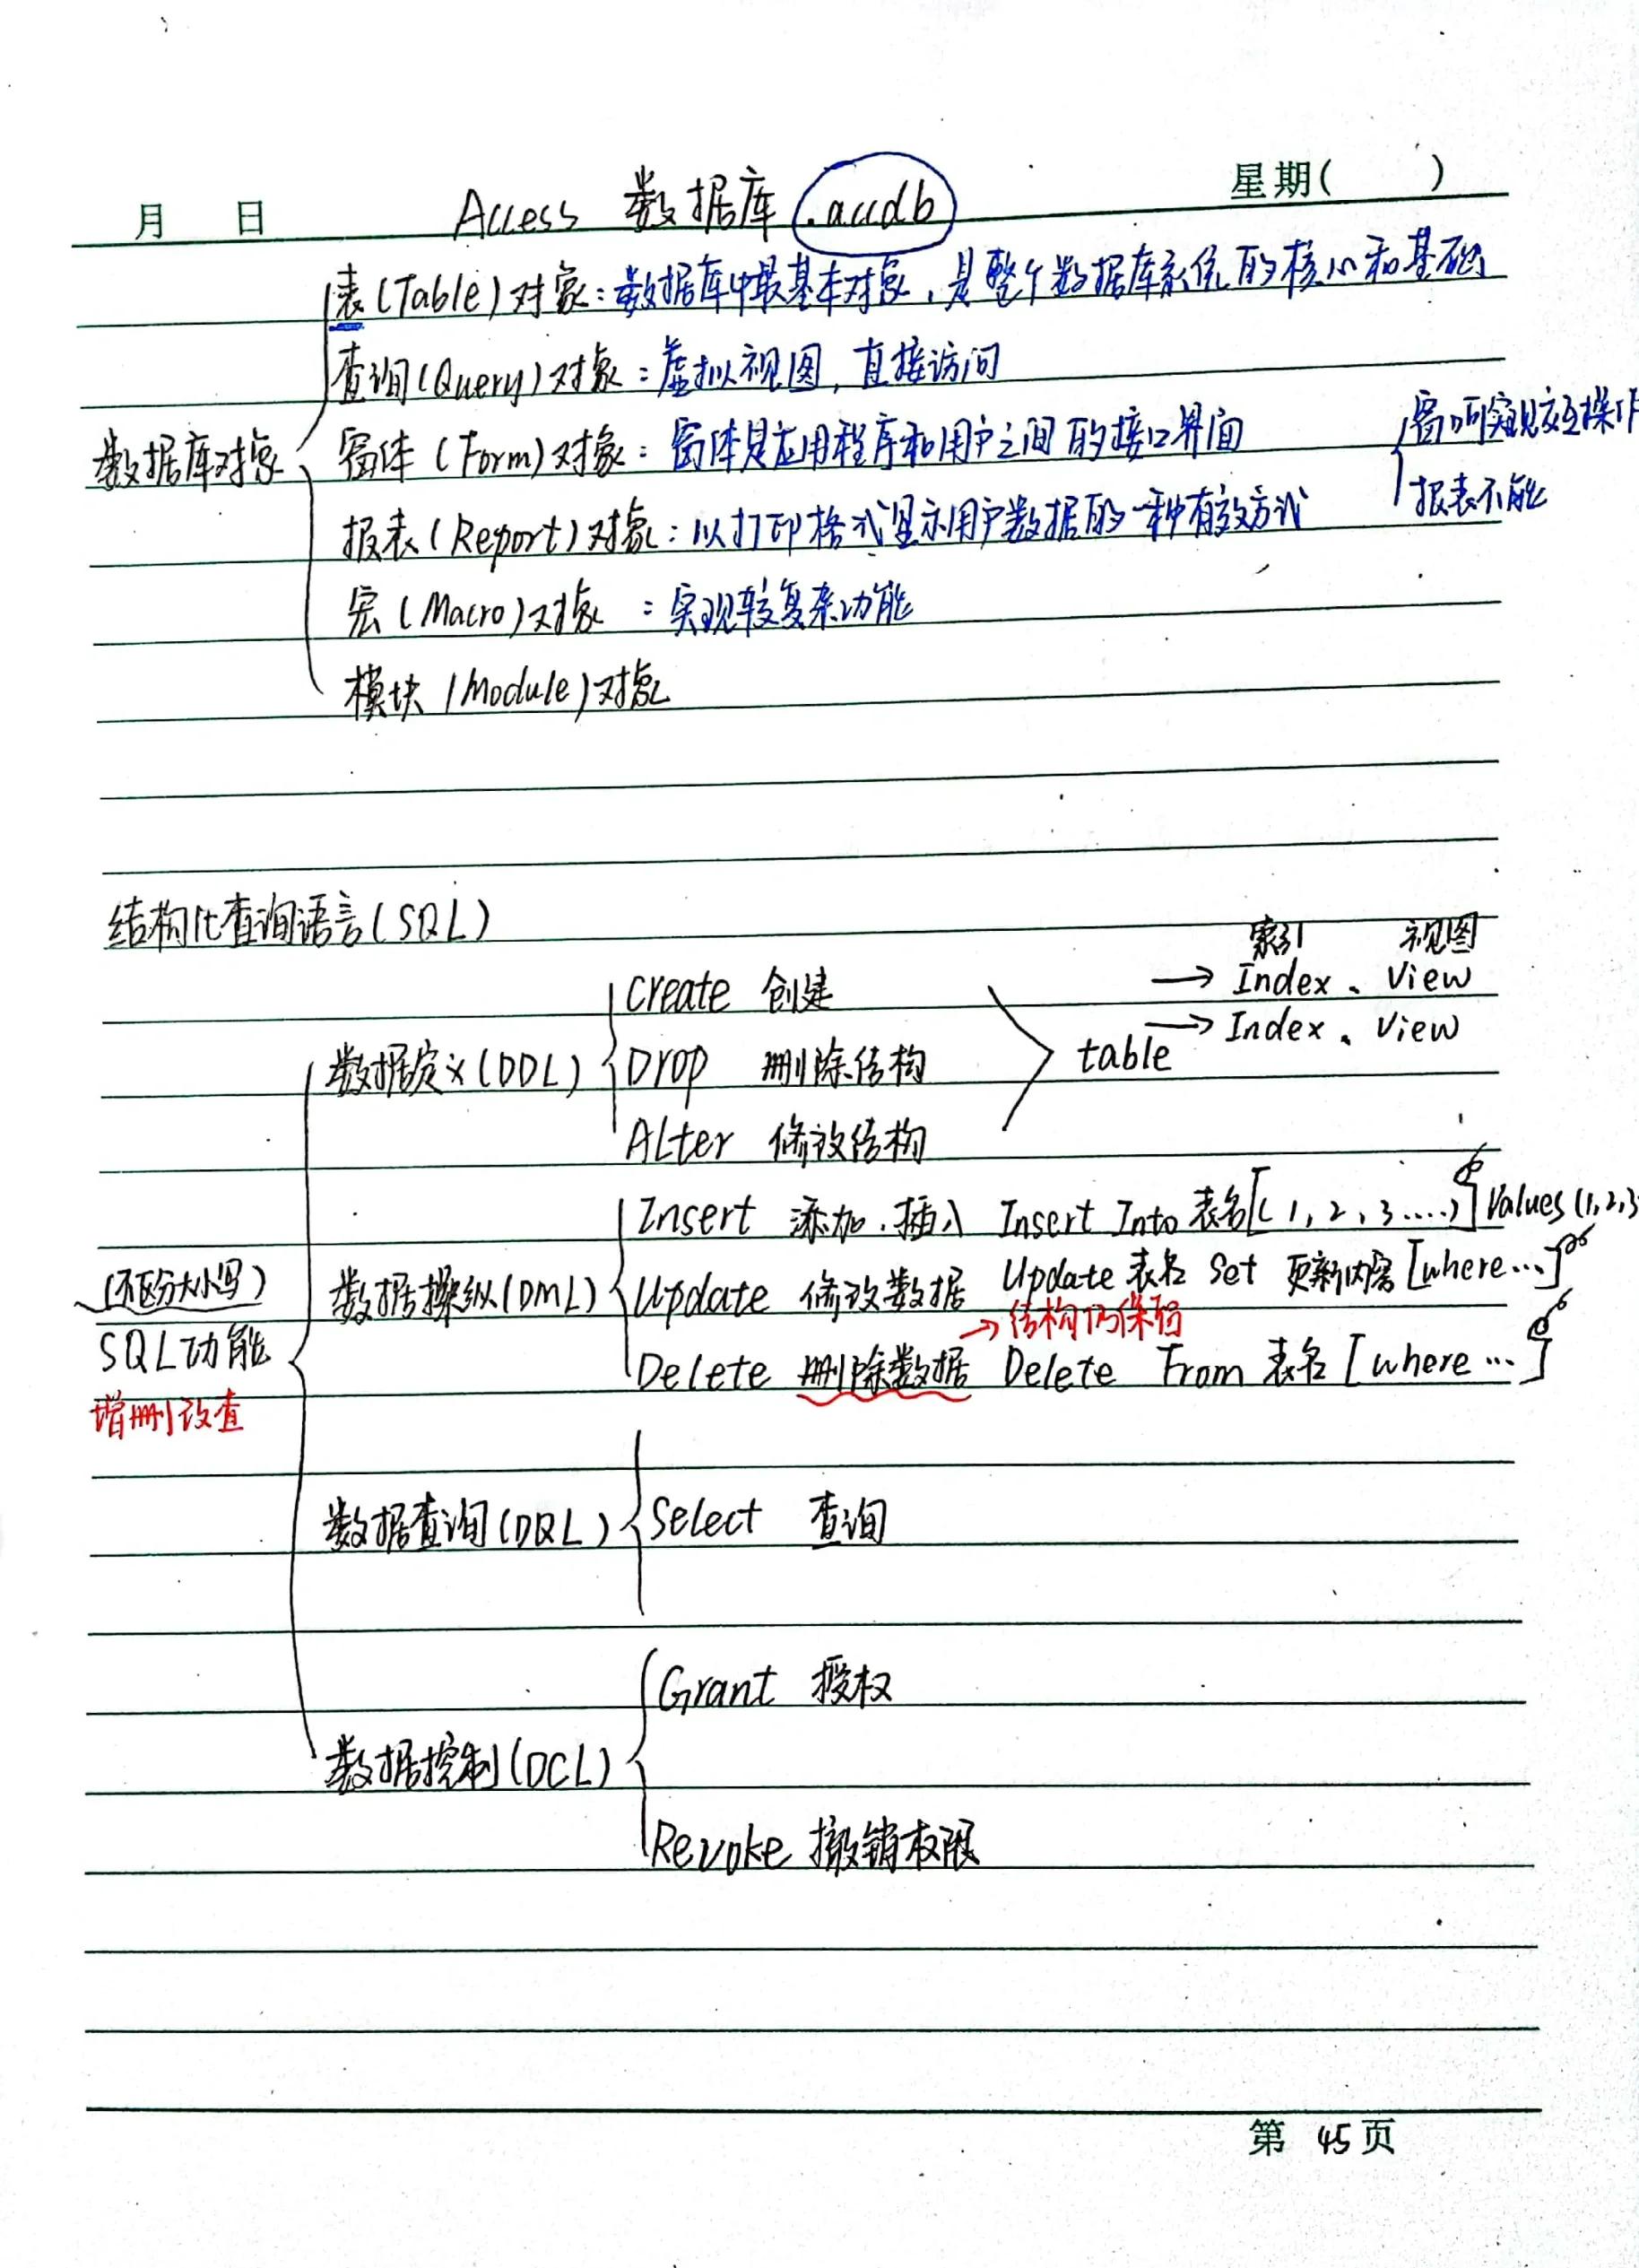 月 日 Access 数据库 .accdb 星期( )
表(Table)对象:数据库中最基本对象,是整个数据库系统的核心和基础
查询(Query)对象:虚拟视图,直接访问
数据库对象 窗体(Form)对象:窗体是应用程序和用户之间的接口界面 窗口可实现交互操作
报表(Report)对象:以打印格式显示用户数据的一种有效方式 报表不能
宏(Macro)对象 :实现较复杂功能
模块(Module)对象
结构化查询语言(SQL)
索引 视图
Create 创建 → Index、View
数据定义(DDL) Drop 删除结构 table → Index、View
Alter 修改结构
Insert 添加.插入 Insert Into 表名[(1,2,3....)] Values(1,2,3
(不区分大小写) 数据操纵(DML) Update 修改数据 Update 表名 Set 更新内容 [where...]
→结构仍保留
SQL功能 Delete 删除数据 Delete From 表名 [where...]
增删改查
数据查询(DQL) Select 查询
Grant 授权
数据控制(DCL)
Revoke 撤销权限
第 45 页